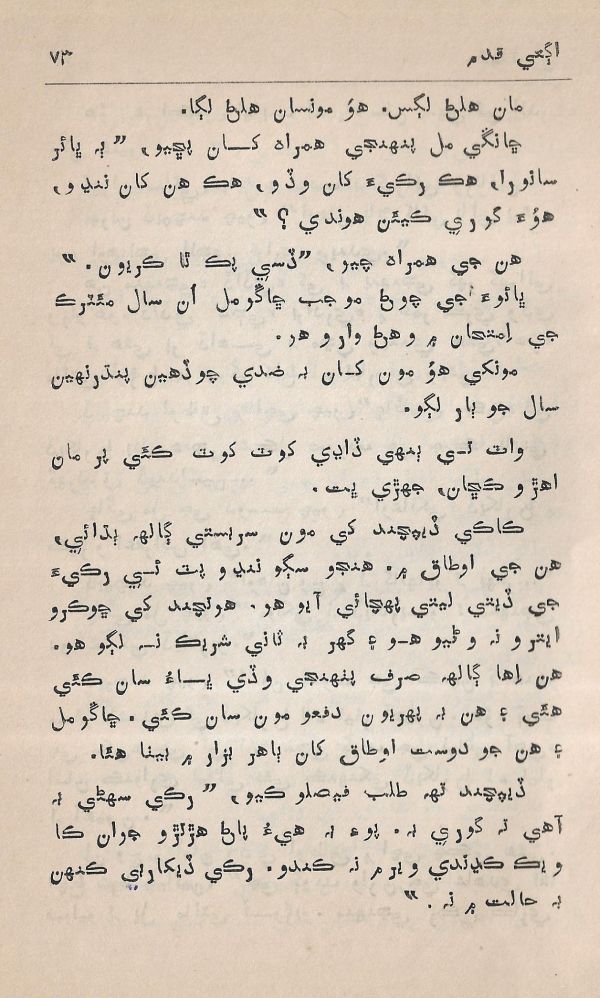 اڳتي قدم ٧٣
مان هلڻ لڳس. هؤ مونسان هلڻ لڳا.
چانگي مل پنهنجي همراه کان پڇيو، ”به ڀائر
سانورا، هڪ رکيءَ کان وڏو، هڪ هن کان ننڍو،
هؤءَ گوري ڪيئن هوندي؟“
هن جي همراه چيو، ”ڏسي پڪ ٿا ڪريون.“
ڀائوءَ جي چوڻ موجب چاگومل اُن سال مئٽرڪ
جي اِمتحان ۾ وهڻ وارو هو.
مونکي هؤ مون کان به ضدي چوڏهين پندرنهين
سال جو ٻار لڳو.
واٽ تي ٻنهي ڏاڍي کوٽ کوٽ ڪئي پر مان
اهڙو ڪڇان، جهڙي ڀت.
ڪاڪي ڏيپچند کي مون سربستي ڳالهه ٻڌائي،
هن جي اوطاق ۾. هنجو سڳو ننڍو پٽ ئي رکيءَ
جي ڏيتي ليتي پهچائي آيو هو. هوتچند کي ڇوڪرو
ايترو نه وڻيو هو ۽ گهر به ثاني شريڪ نه لڳو هو.
هن اِها ڳالهه صرف پنهنجي وڏي ڀاءُ سان ڪئي
هئي ۽ هن به پهريون دفعو مون سان ڪئي. چاگومل
۽ هن جو دوست اوطاق کان ٻاهر بزار ۾ بيٺا هئا.
ڏيپچند تهه طلب فيصلو ڪيو، ”رکي سهڻي به
آهي ته گوري به. پوءِ به هيءُ پاڻ هڙٻڙو جوان ڪا
ويڪ ڪڍندي ويرم نه ڪندو. رکي ڏيکاربي ڪنهن
به حالت ۾ نه.“